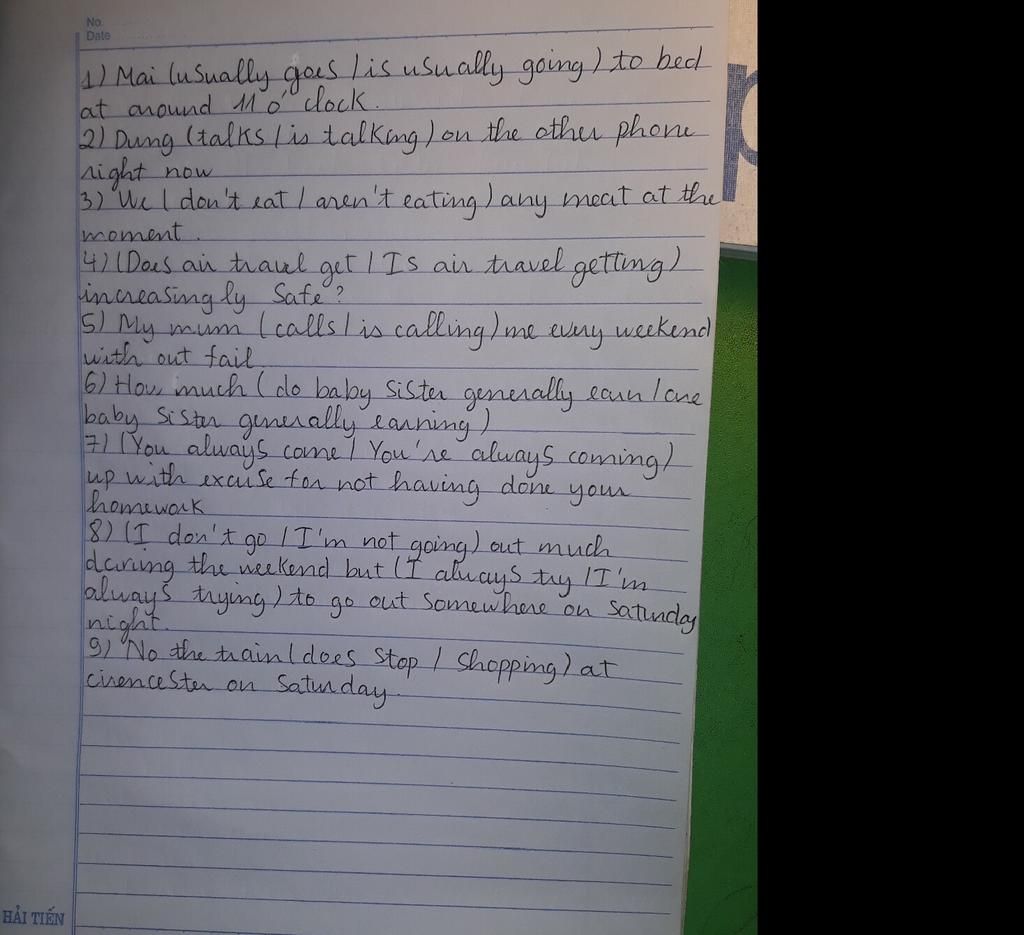 No.
Date
1) Mai (usually goes / is usually going) to bed
at around 11 o' clock.
2) Dung (talks / is talking) on the other phone
right now
3) We (don't eat / aren't eating) any meat at the
moment.
4) (Does air travel get / Is air travel getting)
increasingly safe?
5) My mum (calls / is calling) me every weekend
with out fail.
6) How much (do baby sister generally earn / are
baby sister generally earning)
7) (You always come / You're always coming)
up with excuse for not having done your
homework
8) (I don't go / I'm not going) out much
during the weekend but (I always try / I'm
always trying) to go out somewhere on Saturday
night.
9) No the train (does stop / shopping) at
cirencester on Saturday.
HẢI TIẾN
p